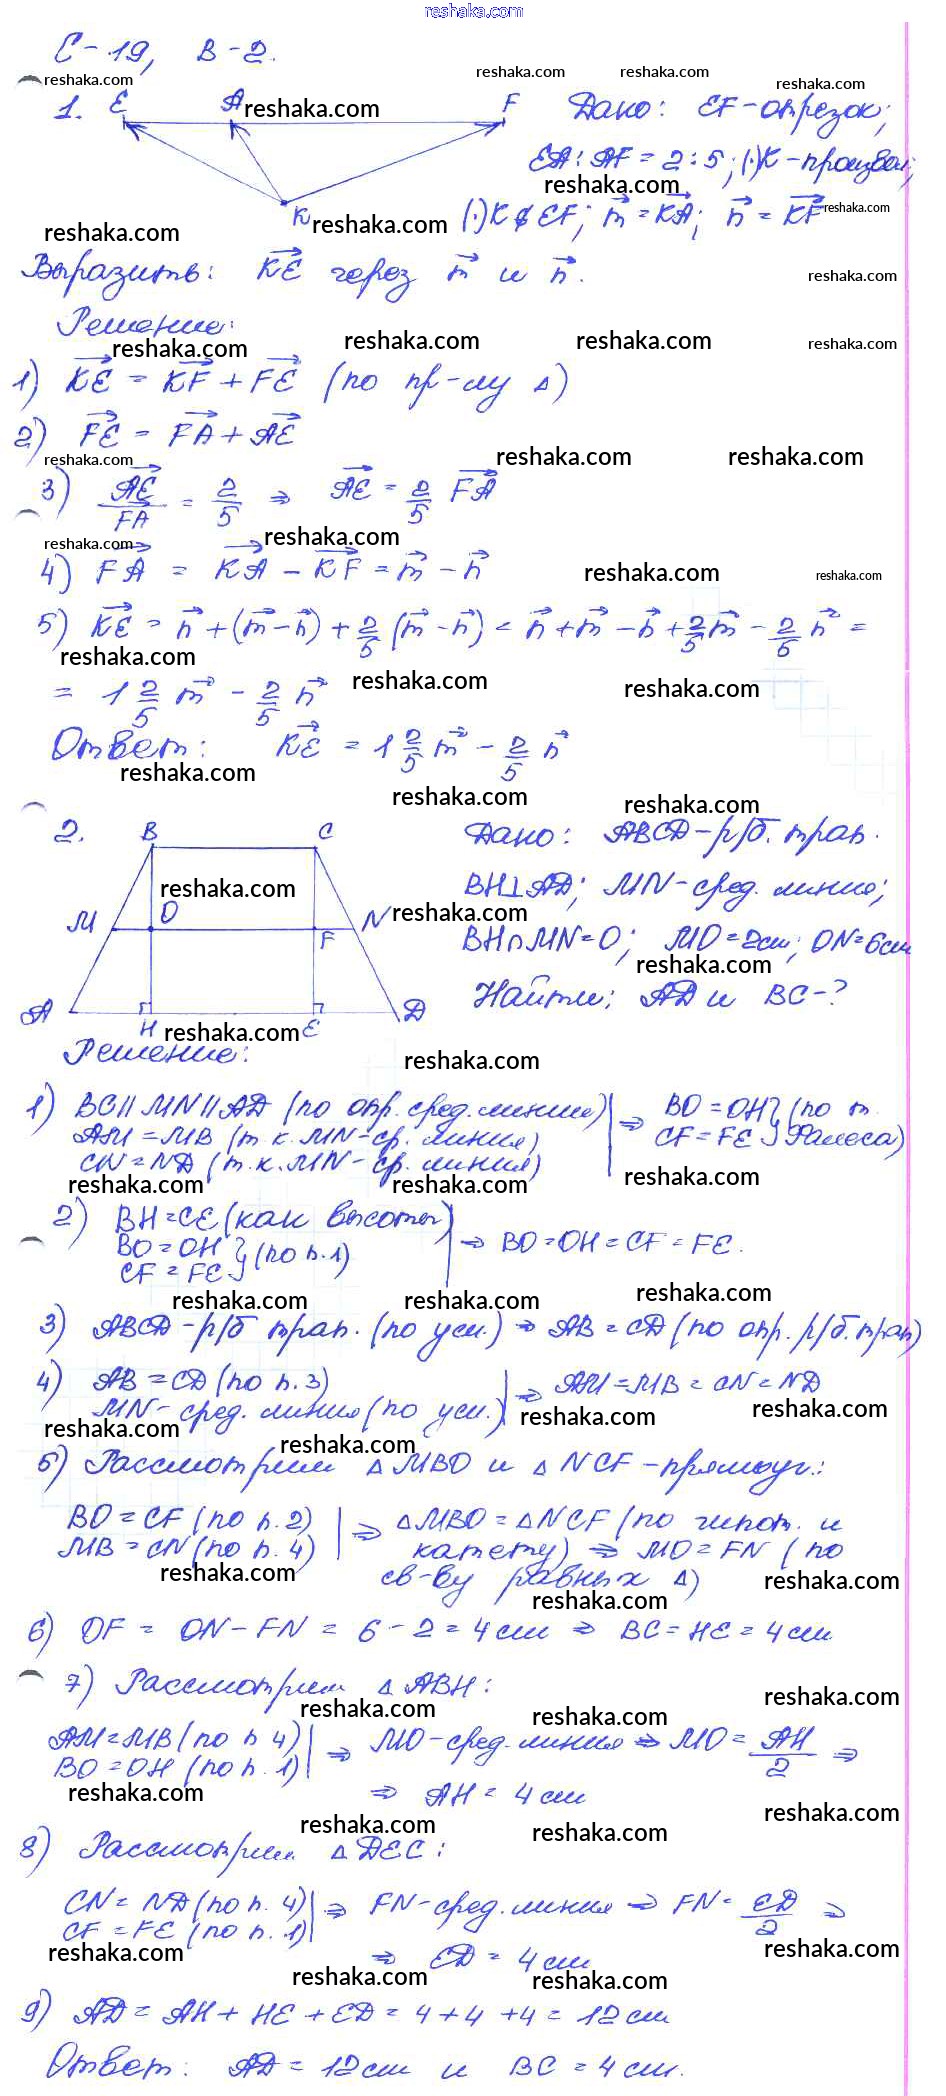 reshaka.com
С-19, В-2.
1.
E A F
K
Дано: EF-отрезок;
EA:AF=2:5; (·)K-произвол;
(·)K∉EF; m⃗=KA⃗; n⃗=KF⃗
Выразить: KE⃗ через m⃗ и n⃗.
Решение:
1) KE⃗ = KF⃗ + FE⃗ (по пр-лу Δ)
2) FE⃗ = FA⃗ + AE⃗
3) AE⃗/FA = 2/5 ⇒ AE⃗ = 2/5 FA⃗
4) FA⃗ = KA⃗ - KF⃗ = m⃗ - n⃗
5) KE⃗ = n⃗ + (m⃗-n⃗) + 2/5 (m⃗-n⃗) = n⃗ + m⃗ - n⃗ + 2/5 m⃗ - 2/5 n⃗ =
= 1 2/5 m⃗ - 2/5 n⃗
Ответ: KE⃗ = 1 2/5 m⃗ - 2/5 n⃗
2.
B C
M O F N
A H E D
Дано: ABCD-р/б. трап.
BH⊥AD; MN-сред. линия;
BH∩MN=O; MO=2см; ON=6см
Найти: AD и BC-?
Решение:
1) BC||MN||AD (по опр. сред. линии) ⇒ BO=OH} (по т.
AM=MB (т.к. MN-ср. линия) CF=FE} Фалеса)
CN=ND (т.к. MN-ср. линия)
2) BH=CE (как высоты)
BO=OH} (по п.1) ⇒ BO=OH=CF=FE.
CF=FE}
3) ABCD-р/б трап. (по усл.) ⇒ AB=CD (по опр. р/б. трап)
4) AB=CD (по п.3) ⇒ AM=MB=CN=ND
MN-сред. линия (по усл.)
5) Рассмотрим ΔMBO и ΔNCF-прямоуг.:
BO=CF (по п.2) ⇒ ΔMBO=ΔNCF (по гипот. и
MB=CN (по п.4) катету) ⇒ MO=FN (по
св-ву равных Δ)
6) OF = ON-FN = 6-2=4см ⇒ BC=HE=4см
7) Рассмотрим ΔABH:
AM=MB (по п 4) ⇒ MO-сред. линия ⇒ MO=AH/2 ⇒
BO=OH (по п.1)
⇒ AH=4см
8) Рассмотрим ΔDEC:
CN=ND (по п.4) ⇒ FN-сред. линия ⇒ FN=ED/2 ⇒
CF=FE (по п.1)
⇒ ED=4см
9) AD=AH+HE+ED=4+4+4=12см
Ответ: AD=12см и BC=4см.